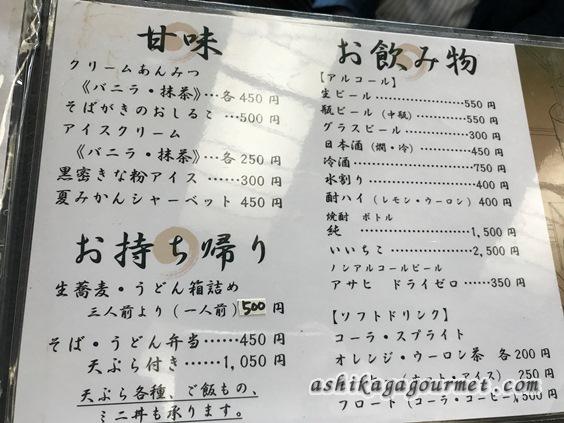 甘味
クリームあんみつ
《バニラ・抹茶》…各450円
そばがきのおしるこ …500円
アイスクリーム
《バニラ・抹茶》…各250円
黒密きな粉アイス ……300円
夏みかんシャーベット 450円
お持ち帰り
生蕎麦・うどん箱詰め
三人前より(一人前)500円
そば・うどん弁当 ……450円
天ぷら付き……1,050円
天ぷら各種、ご飯もの、
ミニ丼も承ります。
お飲み物
【アルコール】
生ビール……………………550円
瓶ビール(中瓶)…………550円
グラスビール………………300円
日本酒(燗・冷)…………450円
冷酒…………………………750円
水割り………………………400円
酎ハイ(レモン・ウーロン)400円
焼酎 ボトル
純 ………………………1,500円
いいちこ ………………2,500円
ノンアルコールビール
アサヒ ドライゼロ……350円
【ソフトドリンク】
コーラ・スプライト
オレンジ・ウーロン茶 各200円
ット・アイス) 250円
フロート(コーラ・コーヒー)500円
ashikagagourmet.com